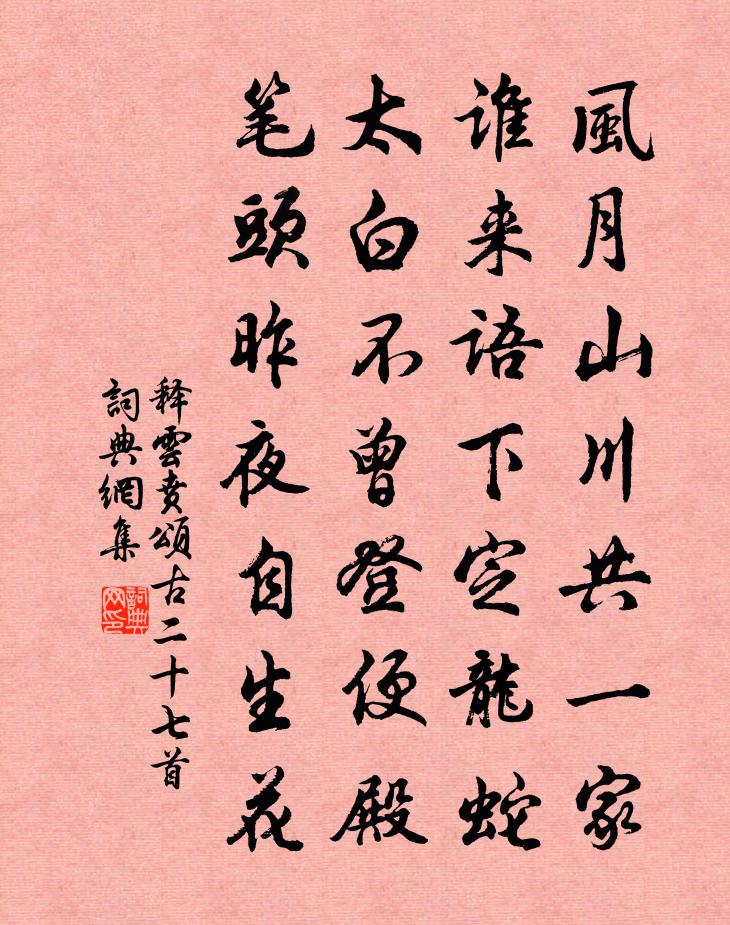 風月山川共一家
谁来语下定龍蛇
太白不曾登便殿
笔頭昨夜自生花
释雲賁頌古二十七首
詞典網集
詞典网印